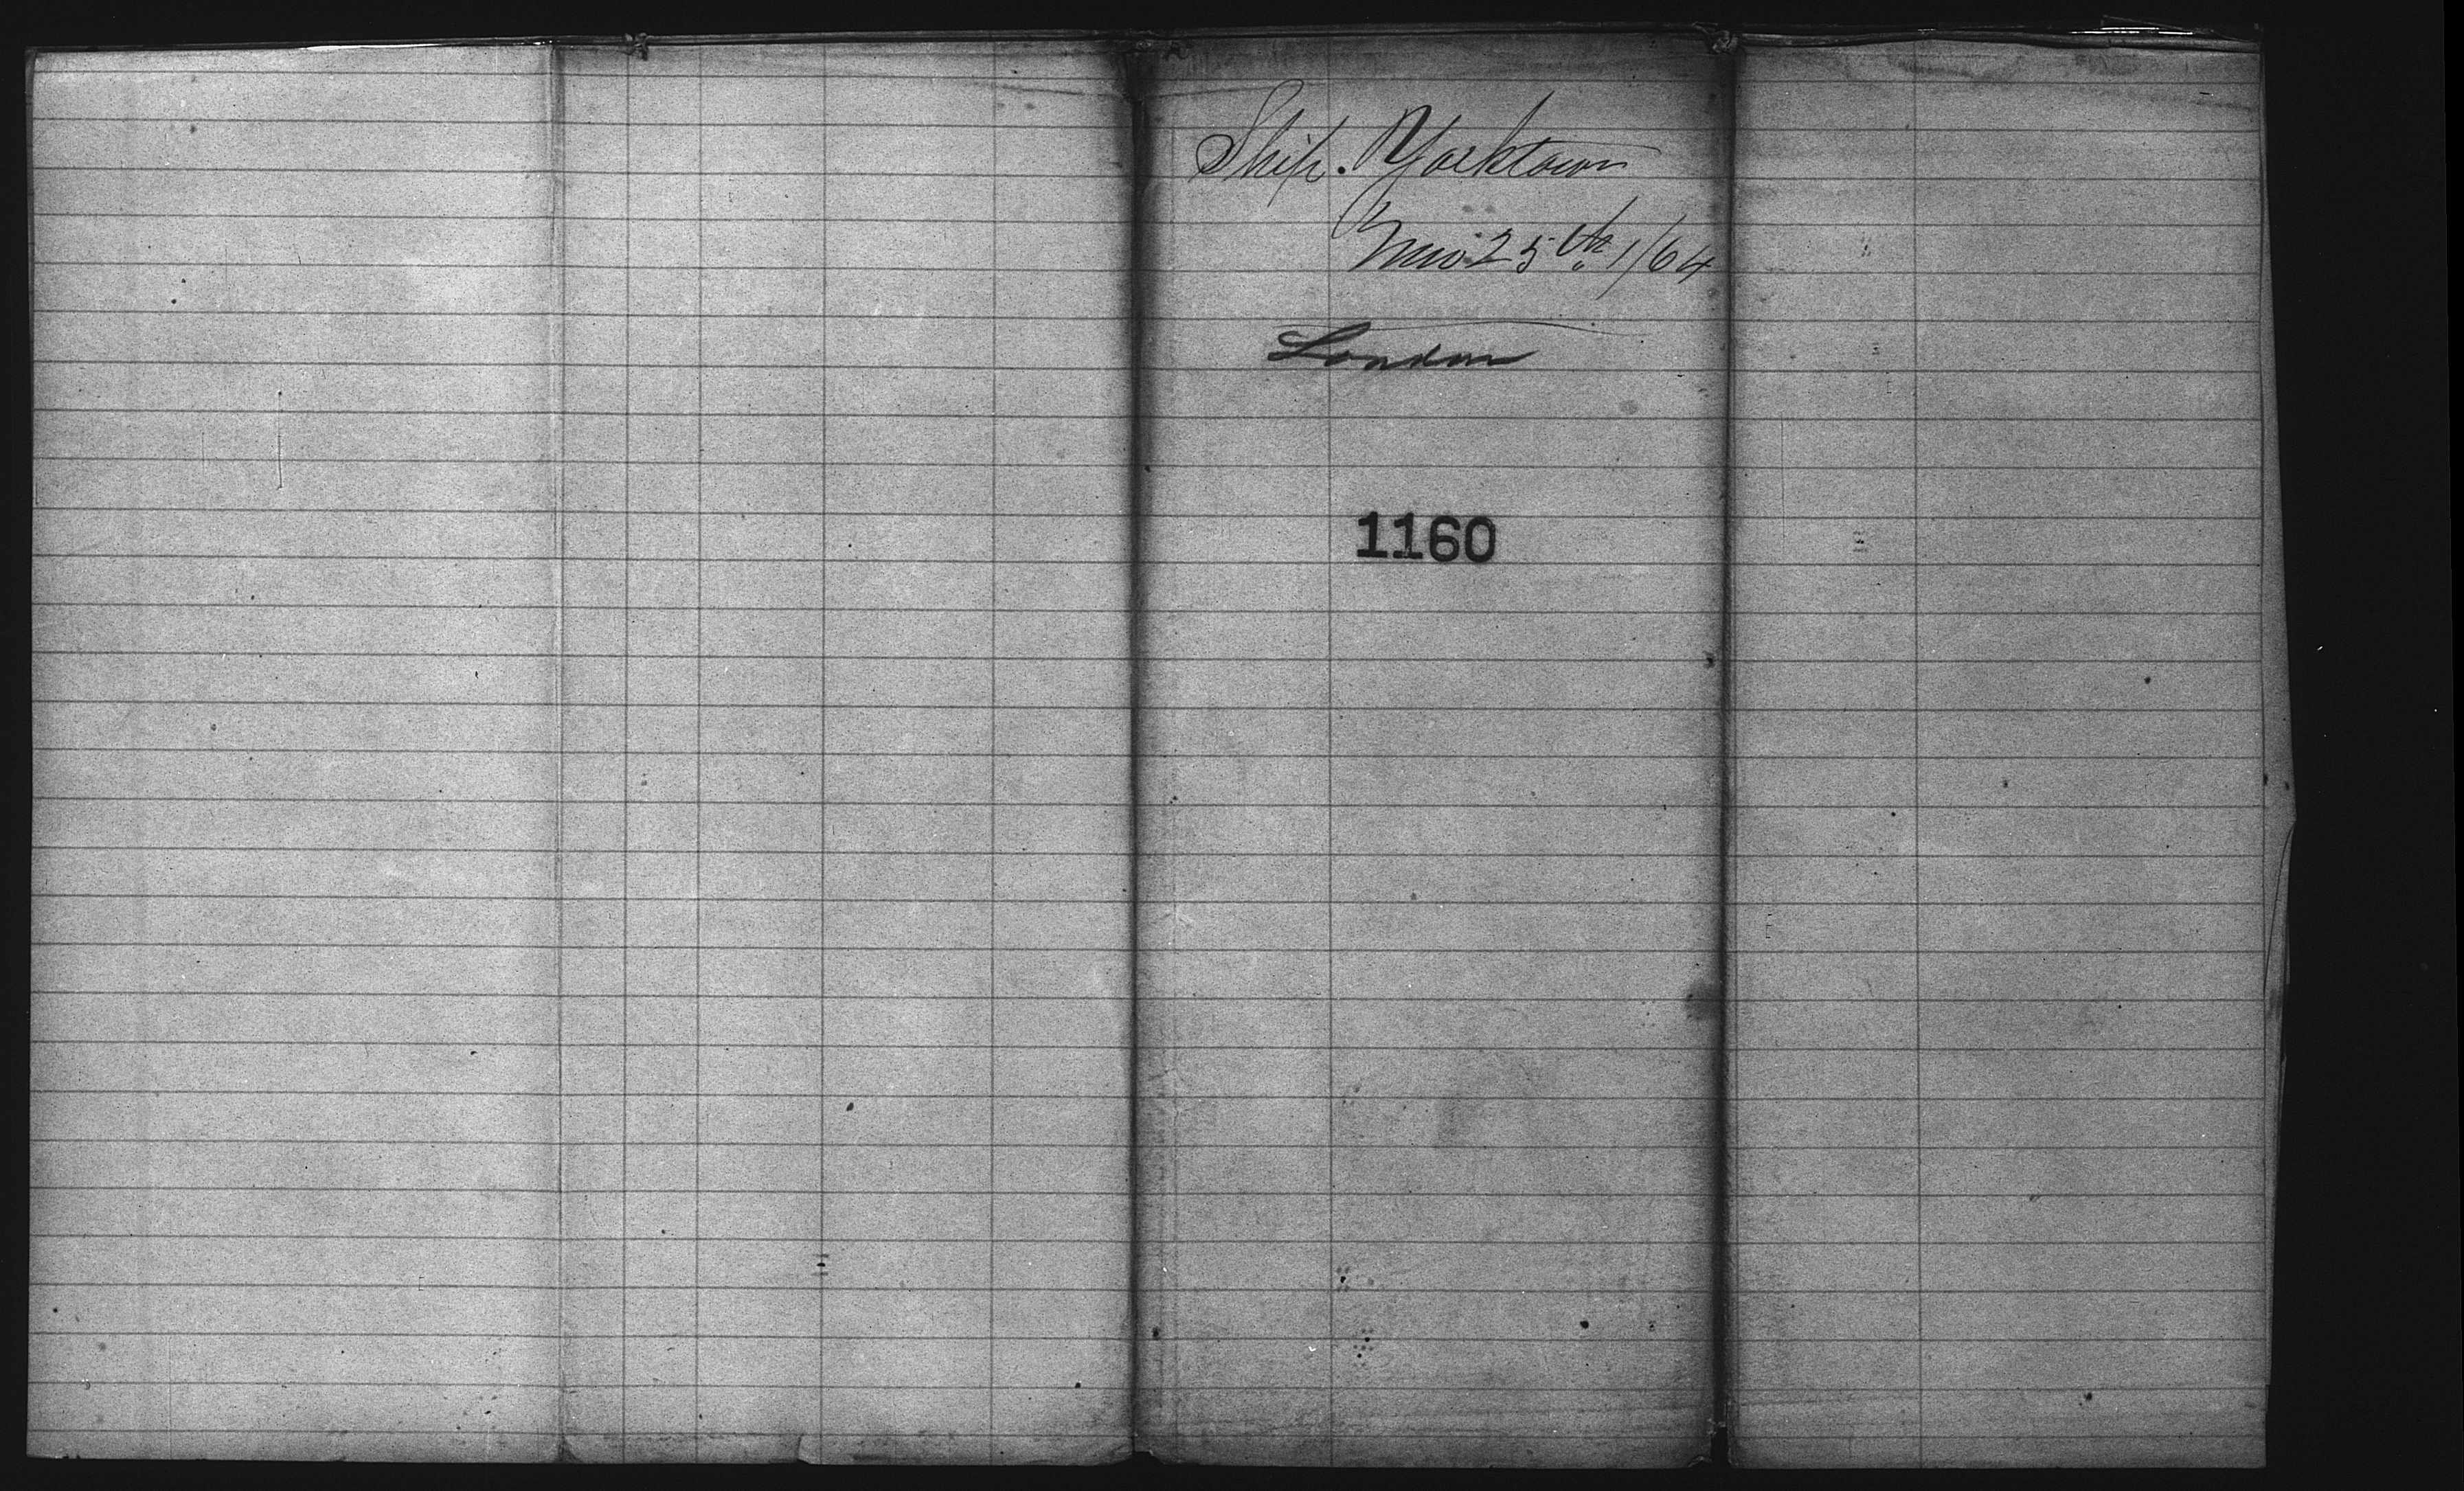 Ship. Yorktown
Nov 25th 1/64
London
1160